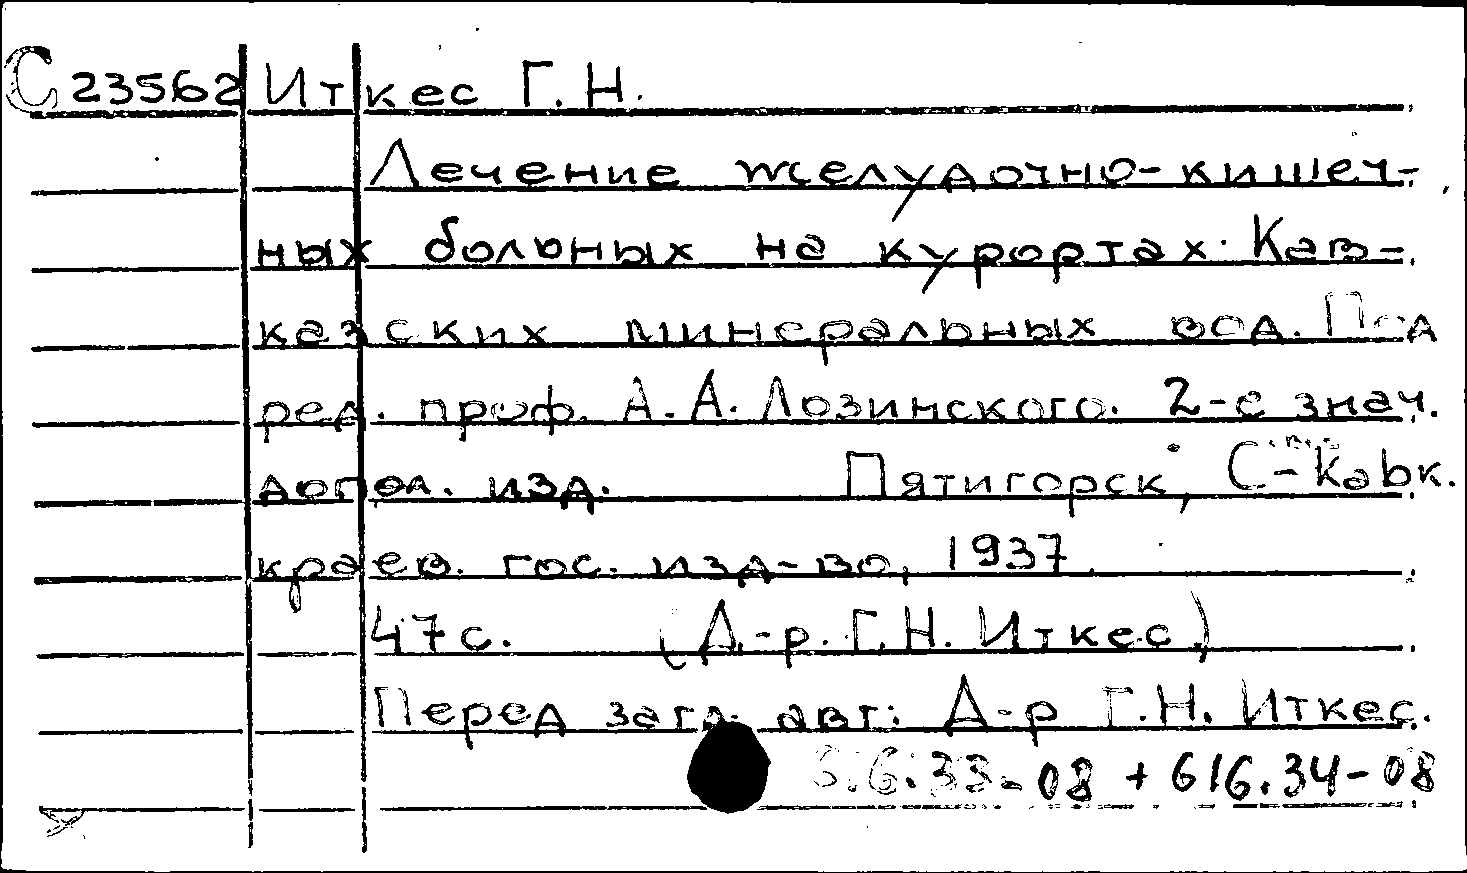 С 23562 Иткес Г. Н.
Лечение желудочно-кишеч-
ных больных на курортах Кав-
казских минеральных вод. Под
ред. проф. А. А. Лозинского. 2-е знач.
допол. изд. Пятигорск, С-Кавк.
краев. гос. изд-во, 1937.
47 с. (Д-р. Г. Н. Иткес.)
Перед загл. авт: Д-р Г. Н. Иткес.
616.33-08 + 616.34-08